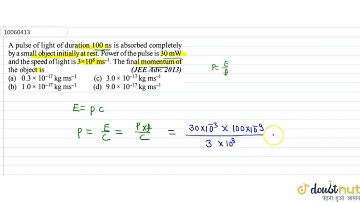 10060413
A pulse of light of duration 100 ns is absorbed completely
by a small object initially at rest. Power of the pulse is 30 mW
and the speed of light is 3×10⁸ ms⁻¹. The final momentum of
the object is (JEE Adv. 2013)
(a) 0.3 × 10⁻¹⁷ kg ms⁻¹ (c) 3.0 × 10⁻¹⁷ kg ms⁻¹
(b) 1.0 × 10⁻¹⁷ kg ms⁻¹ (d) 9.0 × 10⁻¹⁷ kg ms⁻¹
P = E/t
E = pc
p = E/C = P×t/C = 30×10⁻³ × 100×10⁻⁹ / 3 × 10⁸
doubtnut